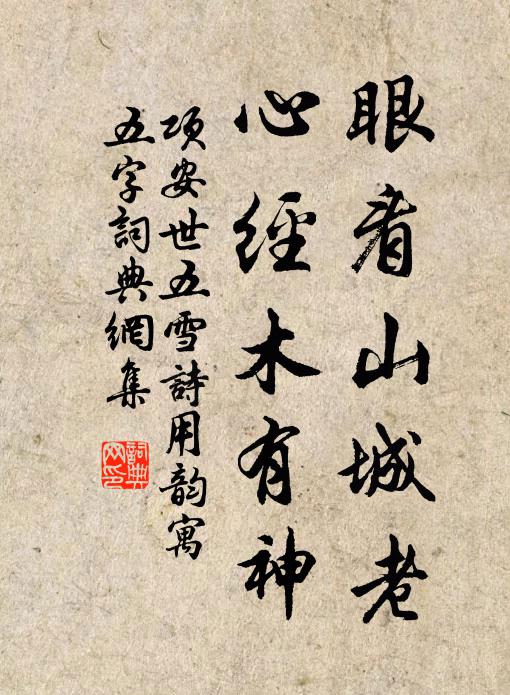 眼看山城老
心經木有神
項安世五雪詩用韵寓
五字詞典網集
詞典网印